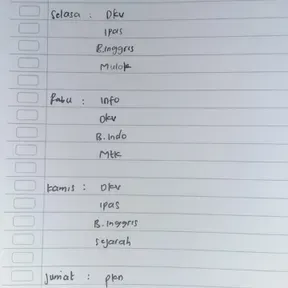 Selasa : Dkv
Ipas
B.Inggris
Midok
Rabu : Info
Dkv
B. Indo
Mtk
Kamis : Dkv
Ipas
B. Inggris
Sejarah
Jum'at : pkn